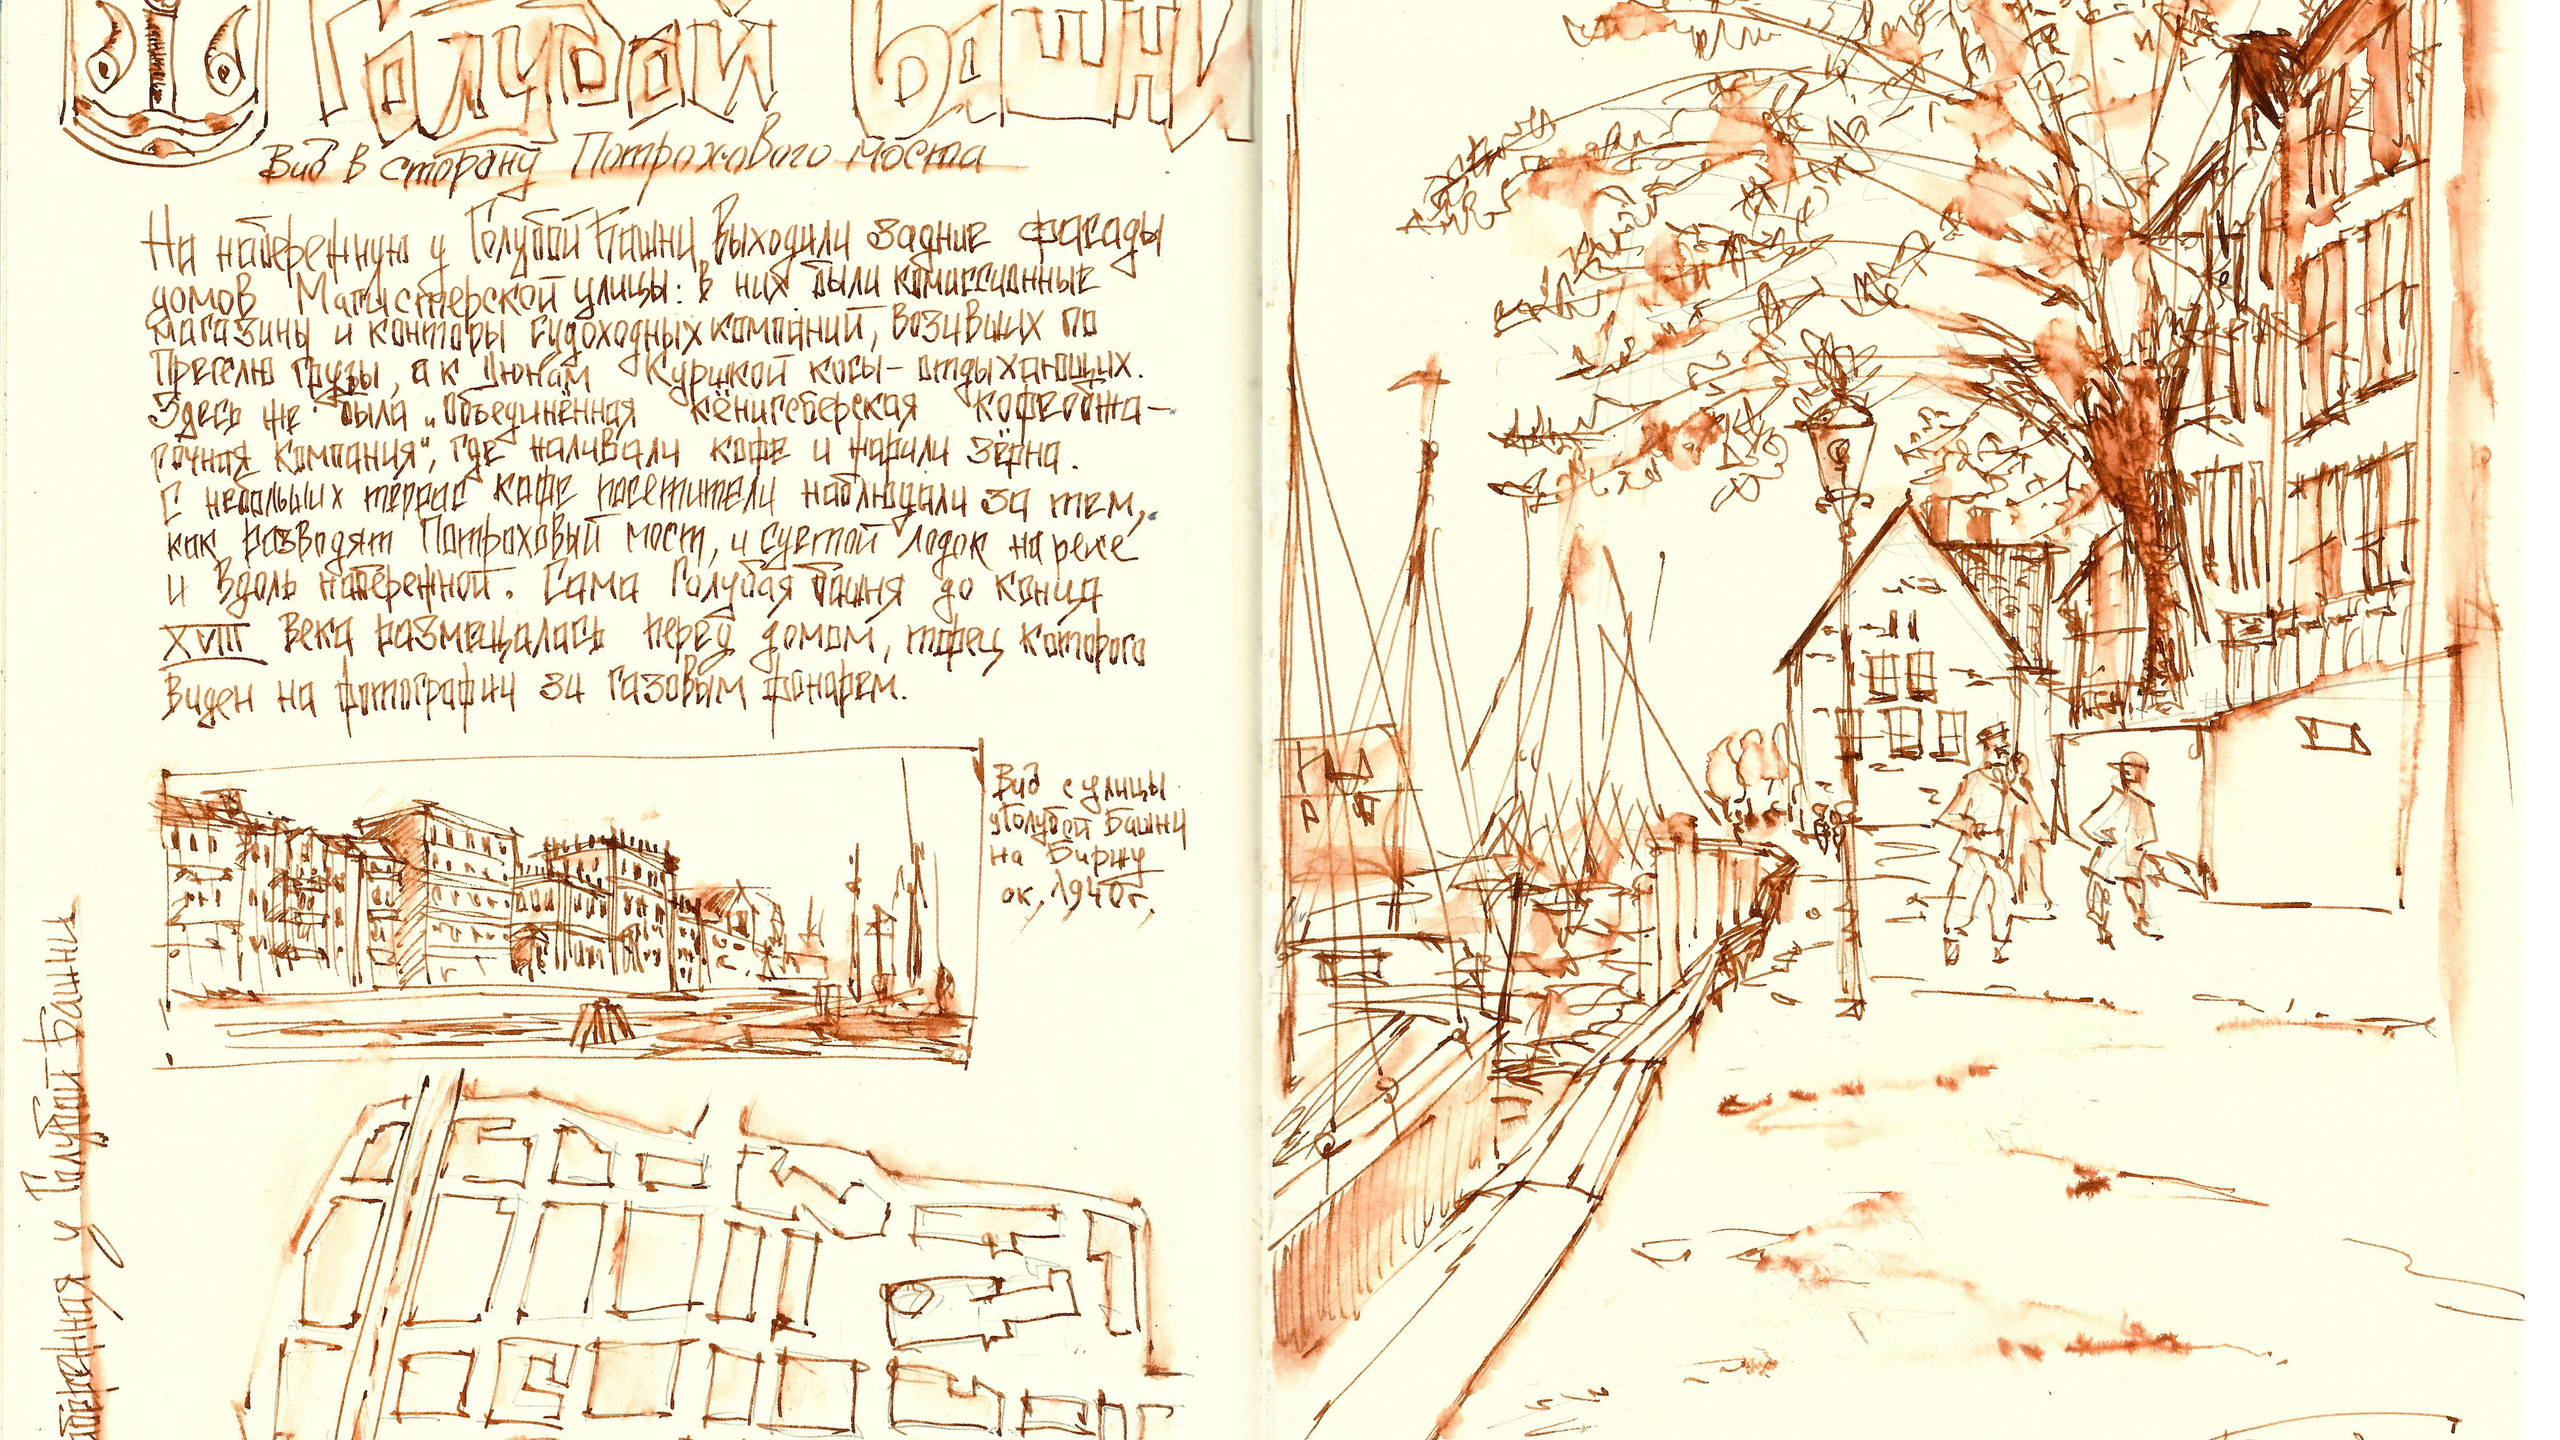 Голубой Башни
Вид в сторону Потрохового моста
На набережную у Голубой Башни выходили задние фасады
домов Магистерской улицы: в них были комиссионные
магазины и конторы судоходных компаний, возивших по
Преголю грузы, а к дюнам Куршской косы – отдыхающих.
Здесь же была „Объединённая кёнигсберская кофеобжа-
рочная компания", где наливали кофе и жарили зёрна.
С небольших террас кафе посетители наблюдали за тем,
как разводят Потроховый мост, и суетой лодок на реке
и вдоль набережной. Сама Голубая башня до конца
XVIII века размещалась перед домом, торец которого
виден на фотографии за газовым фонарем.
Вид с улицы
у Голубой Башни
на Биржу
ок. 1940г.
абережная у Голубой Башни